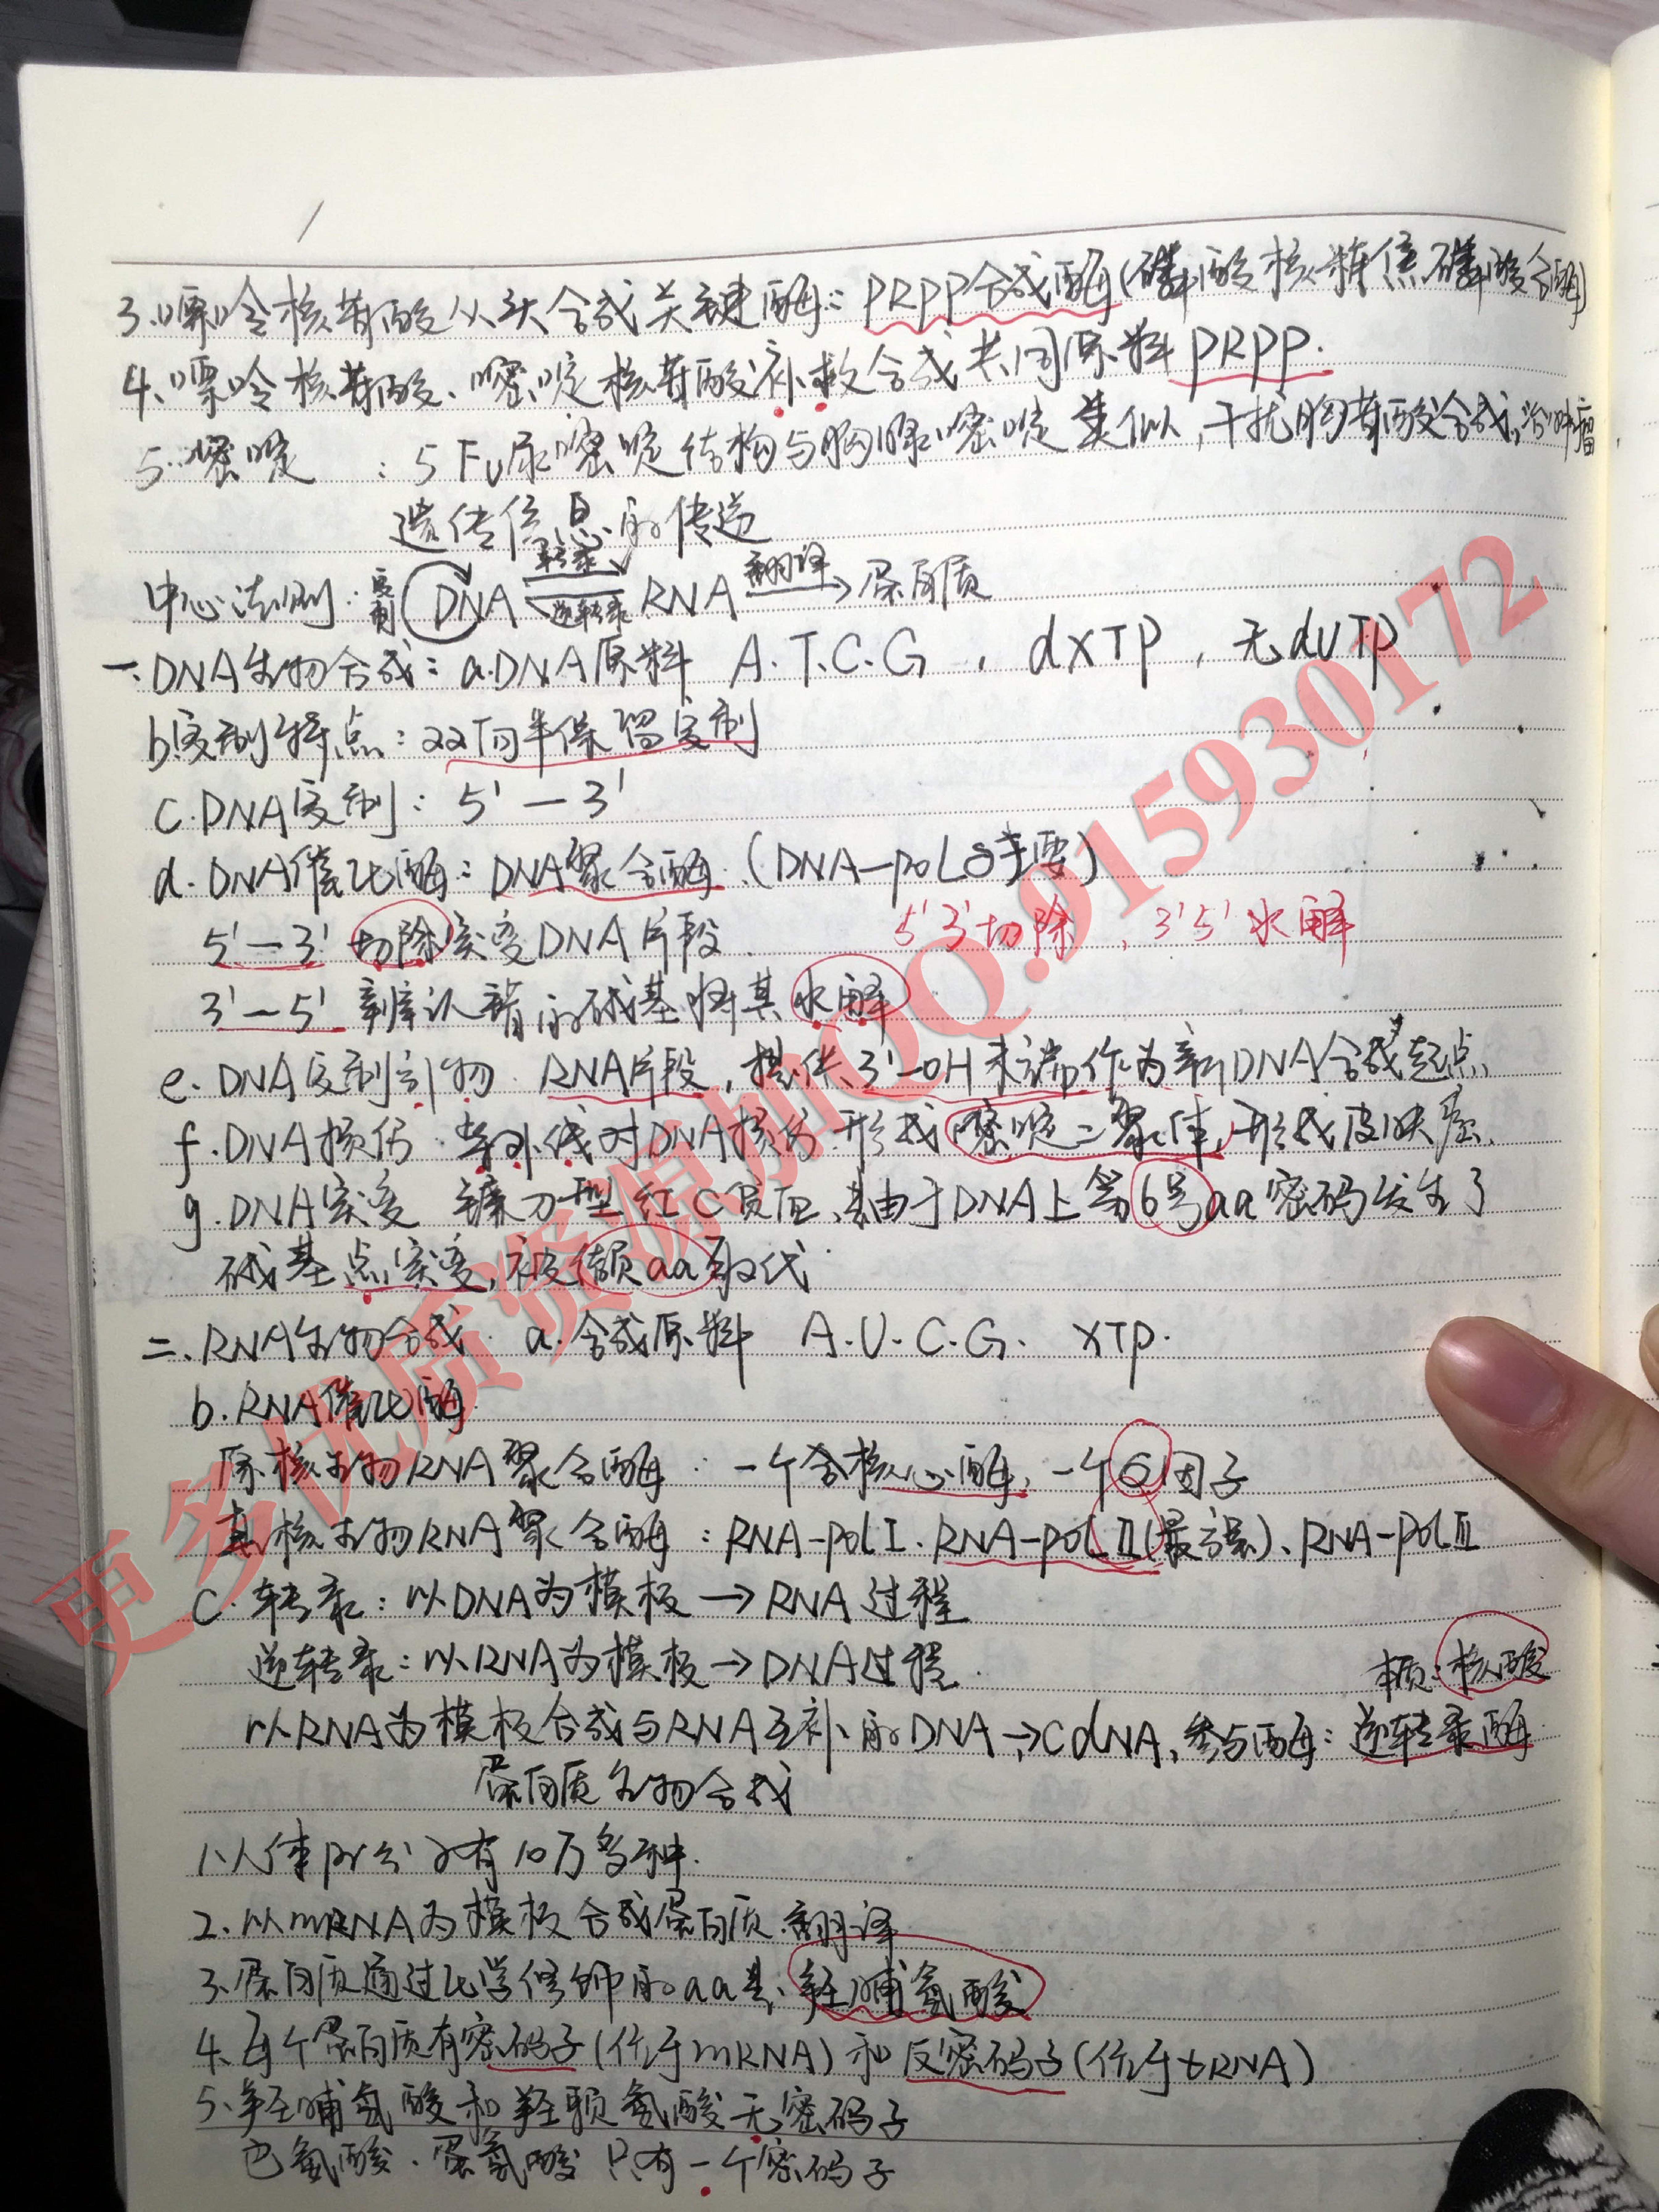 3.嘌呤核苷酸从头合成关键酶:PRPP合成酶(磷酸核糖焦磷酸合酶)
4.嘌呤核苷酸、嘧啶核苷酸补救合成共同原料PRPP.
5.嘧啶 :5Fu尿嘧啶结构与胸腺嘧啶类似,干扰胸苷酸合成,治肿瘤.
遗传信息的传递
中心法则:复制 DNA 转录 逆转录 RNA 翻译→蛋白质
一.DNA生物合成:a.DNA原料 A.T.C.G , dXTP , 无dUTP
b.复制特点:双向半保留复制
c.DNA复制:5'—3'
d.DNA催化酶:DNA聚合酶.(DNA-pol δ主要)
5'—3' 切除突变DNA片段 5'3'切除,3'5'水解
3'—5' 辨认错的碱基将其水解
e.DNA复制引物 RNA片段,提供3'-OH末端作为新DNA合成起点
f.DNA损伤 紫外线对DNA损伤形成嘧啶二聚体,形成皮肤癌.
g.DNA突变 镰刀型红C贫血,是由于DNA上第6号aa密码发生了
碱基点突变,被缬aa取代
二.RNA生物合成 a.合成原料 A.U.C.G. XTP.
b.RNA催化酶
原核生物RNA聚合酶:一个含核心酶,一个σ因子
真核生物RNA聚合酶:RNA-pol I.RNA-pol II(最主要)、RNA-pol III
c 转录:以DNA为模板→RNA过程
逆转录:以RNA为模板→DNA过程. 本质:核酸
以RNA为模板合成与RNA互补的DNA→cdNA,参与酶:逆转录酶
蛋白质生物合成
1.人体pr分子有10万多种.
2.以mRNA为模板合成蛋白质.翻译
3.蛋白质通过化学修饰的aa是:羟脯氨酸
4.每个蛋白质有密码子(位于mRNA)和反密码子(位于tRNA)
5.羟脯氨酸和羟赖氨酸无密码子
色氨酸.蛋氨酸只有一个密码子
更多优质资源加QQ:915930172